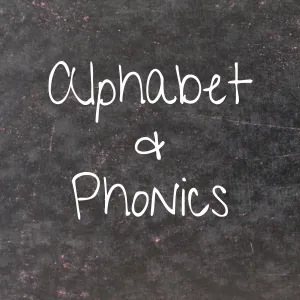 Alphabet
&
Phonics